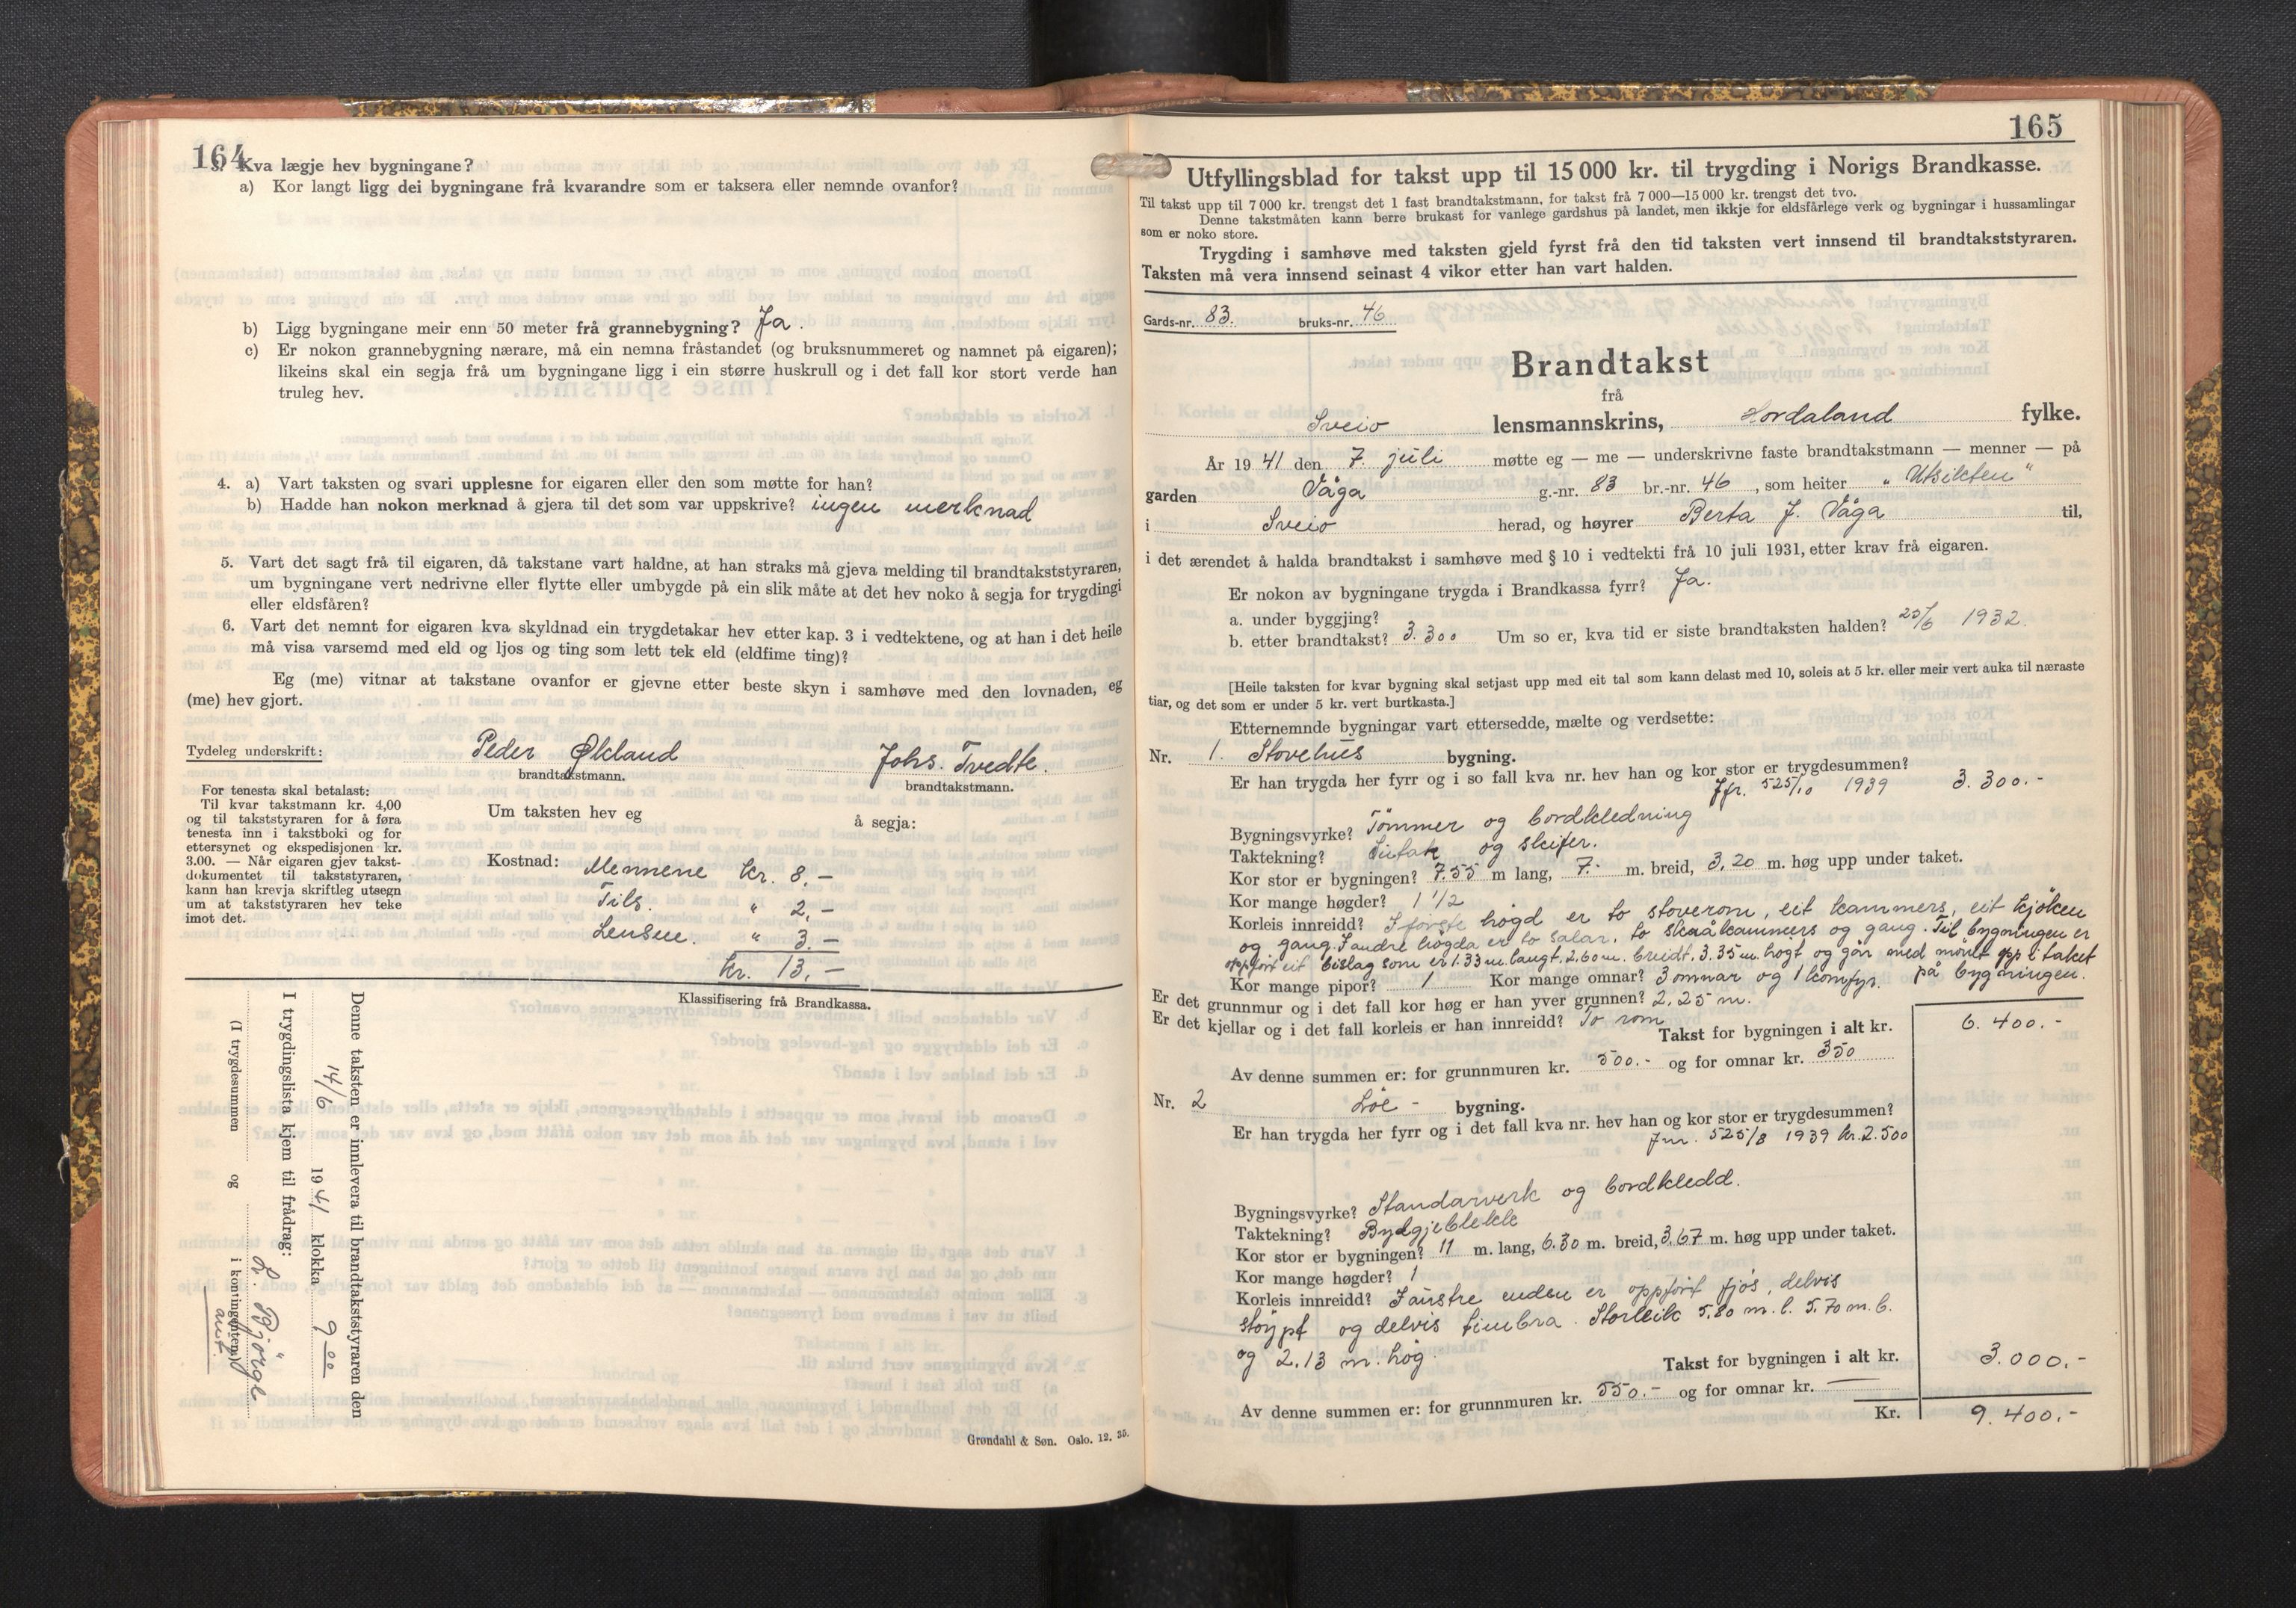 164
3. Kva lægje hev bygningane?
a) Kor langt ligg dei bygningane frå kvarandre som er taksera eller nemnde ovanfor?
b) Ligg bygningane meir enn 50 meter frå grannebygning? Ja.
c) Er nokon grannebygning nærare, må ein nemna fråstandet (og bruksnummeret og namnet på eigaren);
likeins skal ein segja frå um bygningane ligg i ein større huskrull og i det fall kor stort verde han
truleg hev.
4. a) Vart taksten og svari upplesne for eigaren eller den som møtte for han?
b) Hadde han nokon merknad å gjera til det som var uppskrive? ingen merknad
5. Vart det sagt frå til eigaren, då takstane vart haldne, at han straks må gjeva melding til brandtakststyraren,
um bygningane vert nedrivne eller flytte eller umbygde på ein slik måte at det hev noko å segja for trygdingi
eller eldsfåren?
6. Vart det nemnt for eigaren kva skyldnad ein trygdetakar hev etter kap. 3 i vedtektene, og at han i det heile
må visa varsemd med eld og ljos og ting som lett tek eld (eldfime ting)?
Eg (me) vitnar at takstane ovanfor er gjevne etter beste skyn i samhøve med den lovnaden, eg
(me) hev gjort.
Tydeleg underskrift: Peder Økland Johs. Tvedte.
brandtakstmann. brandtakstmann.
For tenesta skal betalast:
Til kvar takstmann kr. 4,00
og til takststyraren for å føra
tenesta inn i takstboki og for
ettersynet og ekspedisjonen kr.
3.00. — Når eigaren gjev takst-
dokumentet til takststyraren,
kann han krevja skriftleg utsegn
um at takststyraren hev teke
imot det.
Um taksten hev eg å segja:
Kostnad: Mennene kr. 8,-
Tils. " 2,-
Lensm. " 3.-
Kr. 13,-
Klassifisering frå Brandkassa.
Denne taksten er innlevera til brandtakststyraren den
14/6 1941 klokka 9 00
I trygdingslista kjem til frådrag:
L. Björge
(I trygdesummen og i kontingenten)
Grøndahl & Søn. Oslo. 12. 35.
165
Utfyllingsblad for takst upp til 15 000 kr. til trygding i Norigs Brandkasse.
Til takst upp til 7 000 kr. trengst det 1 fast brandtakstmann, for takst frå 7 000—15 000 kr. trengst det tvo.
Denne takstmåten kann berre brukast for vanlege gardshus på landet, men ikkje for eldsfårlege verk og bygningar i hussamlingar
som er noko store.
Trygding i samhøve med taksten gjeld fyrst frå den tid taksten vert innsend til brandtakststyraren.
Taksten må vera innsend seinast 4 vikor etter han vart halden.
Gards-nr. 83. bruks-nr. 46
Brandtakst
frå
Sveio lensmannskrins, Hordaland fylke.
År 1941 den 7. juli møtte eg — me — underskrivne faste brandtakstmann — menner — på
garden Våga g.-nr. 83 br.-nr. 46, som heiter „Utsikten"
i Sveio herad, og høyrer Berta J. Våga til,
i det ærendet å halda brandtakst i samhøve med § 10 i vedtekti frå 10 juli 1931, etter krav frå eigaren.
Er nokon av bygningane trygda i Brandkassa fyrr? Ja.
a. under byggjing?
b. etter brandtakst? 3.300 Um so er, kva tid er siste brandtaksten halden? 25/6 1932.
[Heile taksten for kvar bygning skal setjast upp med eit tal som kann delast med 10, soleis at 5 kr. eller meir vert auka til næraste
tiar, og det som er under 5 kr. vert burtkasta.]
Etternemnde bygningar vart ettersedde, mælte og verdsette:
Nr. 1. Stovehus bygning.
Er han trygda her fyrr og i so fall kva nr. hev han og kor stor er trygdesummen?
Jfr. 525/10 1939 3.300.-
Bygningsvyrke? Tömmer og bordkledning
Taktekning? Sutak og skifer.
Kor stor er bygningen? 7.55 m lang, 7.- m. breid, 3,20 m. høg upp under taket.
Kor mange høgder? 1 1/2
Korleis innreidd? I første högd er to stoverom, eit kammers, eit kjöken
og gang. I andre högda er to salar, to skråkammers og gang. Til bygningen er
oppfört eit bislag som er 1.33 m. langt, 2.60 m. breidt, 3.35 m. högt og går med mönet opp i taket
på bygningen.
Kor mange pipor? 1 Kor mange omnar? 3 omnar og 1 komfyr.
Er det grunnmur og i det fall kor høg er han yver grunnen? 2,25 m.
Er det kjellar og i det fall korleis er han innreidd? To rom
Takst for bygningen i alt kr. 6.400.-
Av denne summen er: for grunnmuren kr. 500.- og for omnar kr. 350
Nr. 2 Löe - bygning.
Er han trygda her fyrr og i det fall kva nr. hev han og kor stor er trygdesummen?
525/8 1939 kr. 2.500
Bygningsvyrke? Standarverk og bordkledd.
Taktekning? Bylgjeblekk
Kor stor er bygningen? 11 m. lang, 6.30 m. breid, 3,67 m. høg upp under taket.
Kor mange høgder? 1
Korleis innreidd? I austre enden er oppfört fjös, delvis
stöypt og delvis timbra. Storleik 5,80 m. l. 5.70 m. b.
og 2.13 m. hög.
Takst for bygningen i alt kr. 3.000,-
Av denne summen er: for grunnmuren kr. 550.- og for omnar kr. —
Kr. 9.400,-